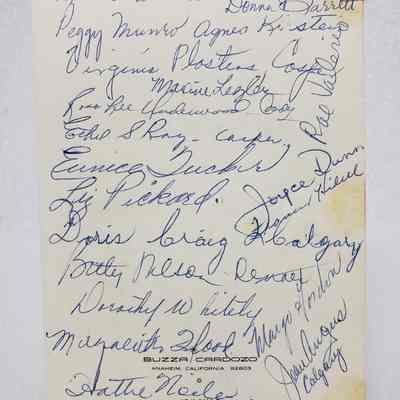 Donna Garrett
Peggy Munro Agnes Kirstein
Virginia Plosters Casper
Maxine Legler
Rosa Lee Underwood Cody
Ethel S Ray - Casper.
Rae
Eunice Tucker
Liz Pickard.
Joyce Dunn
Doris Craig Calgary
Betty Nelson Denver
Dorothy Whitely
Margo Gordon
Marguerite Hood
Jean Angus
Calgary
BUZZA/CARDOZO
ANAHEIM, CALIFORNIA 92803
Hattie